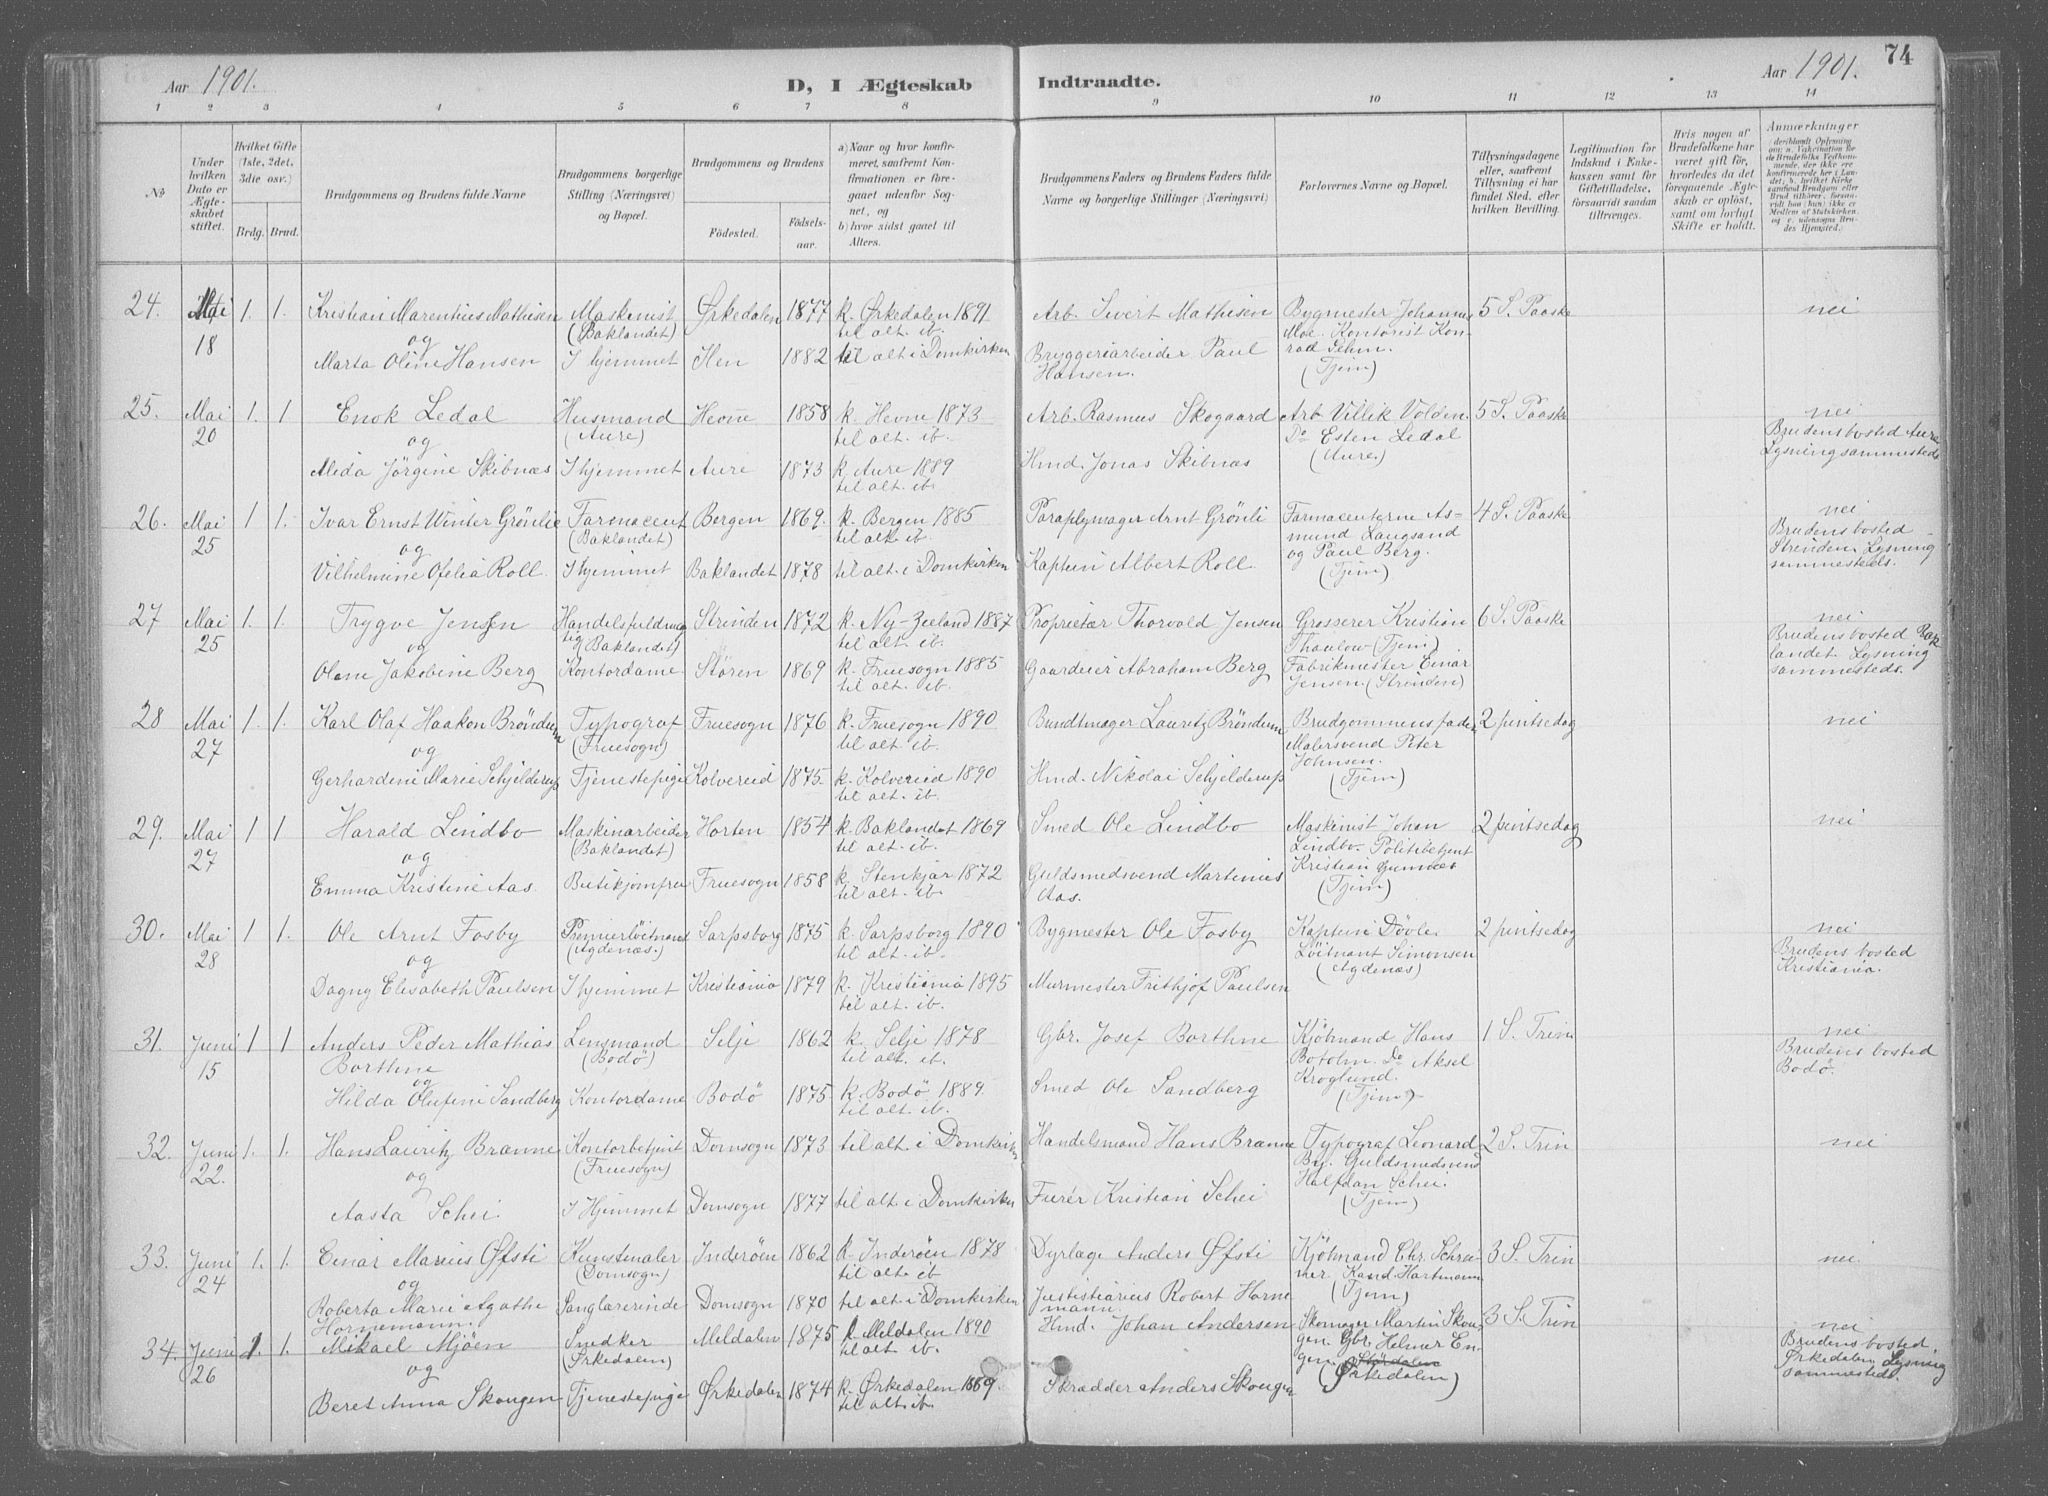 Aar 1901.
D, I Ægteskab Indtraadte.
Aar 1901.
74
1 2 3 4 5 6 7 8 9 10 11 12 13 14
No
Under hvilken Dato er Ægteskabet stiftet.
Hvilket Gifte (1ste, 2det, 3die osv.)
Brdg. Brud.
Brudgommens og Brudens fulde Navne
Brudgommens borgerlige Stilling (Næringsvei) og Bopæl.
Brudgommens og Brudens
Fødested. Fødselsaar.
a) Naar og hvor konfirmeret, saafremt Konfirmationen er foregaaet udenfor Sognet, og
b) hvor sidst gaaet til Alters.
Brudgommens Faders og Brudens Faders fulde Navne og borgerlige Stillinger (Næringsvei)
Forlovernes Navne og Bopæl.
Tillysningsdagene eller, saafremt Tillysning ei har fundet Sted, efter hvilken Bevilling.
Legitimation for Indskud i Enkekassen samt for Giftetilladelse, forsaavidt saadan tiltrænges.
Hvis nogen af Brudefolkene har været gift før, hvorledes da det foregaaende Ægteskab er opløst, samt om lovligt Skifte er holdt.
Anmærkninger
24. Mai 18 1. 1. Kristian Marentius Mathisen Maskinist (Baklandet) Ørkedalen 1877 k. Ørkedalen 1891 til alt. ib. Arb. Sivert Mathisen Bygmester Johannes Moe. Kontorist Konrad Lehm. (Tjem) 5 S. Paaske nei
og
Marta Oline Hansen I hjemmet Ilen 1882 til alt i Domkirken Bryggeriarbeider Paul Hansen.
25. Mai 20 1. 1 Enok Ledal Husmand (Aure) Hevne 1858 k. Hevne 1873 til alt. ib. Arb. Rasmus Skogaard Arb Villik Volden. Do Esten Ledal (Aure.) 5 S. Paaske nei Brudens bosted Aure Lysning sammesteds
og
Alida Jörgine Skibnæs I hjemmet Aure 1873 k. Aure 1889 til alt. ib. Hmd. Jonas Skibnæs
26. Mai 25 1 1. Ivar Ernst Winter Grönlie Farmaceut (Baklandet) Bergen 1869. k. Bergen 1885 til alt. ib. Paraplymager Arnt Grönli Farmaceuterne Asmund Laugsand og Paul Berg. (Tjem) 4 S. Paaske nei Brudens bosted Strinden Lysning sammesteds.
og
Vilhelmine Ofelia Roll. I hjemmet Baklandet 1878 til alt. i Domkirken Kaptein Albert Roll.
27 Mai 25 1. 1. Trygve Jensen Handelsfuldmægtig (Baklandet) Strinden 1872 k. Ny-Zeeland 1887 til alt. ib. Proprietær Thorvald Jensen Grosserer Kristian Thaulow (Tjem) Fabrikmester Einar Jensen. (Strinden) 6 S. Paaske nei Brudens bosted Baklandet Lysning sammesteds.
og
Oline Jakobine Berg Kontordame Støren 1869 k. Fruesogn 1885 til alt. ib. Gaardeier Abraham Berg
28 Mai 27 1. 1. Karl Olaf Haakon Bröndum Typograf (Fruesogn) Fruesogn 1876 k. Fruesogn 1890 til alt. ib. Bundtmager Lauritz Bröndum Brudgommens fader Malersvend Peter Johnsen. (Tjem) 2 pintsedag nei
og
Gerhardine Marie Schjelderup Tjenestepige Kolvereid 1875 k. Kolvereid 1890 til alt. ib. Hmd. Nikolai Schjelderup
29. Mai 27 1 1 Harald Lindbo Maskinarbeider (Baklandet) Horten 1854 k. Baklandet 1869 til alt. ib. Smed Ole Lindbo Maskinist Johan Lindbo. Politibetjent Kristian Gumnæs (Tjem) 2 pintsedag nei
og
Emma Kristine Aas. Butikjomfru Fruesogn 1858 k. Stenkjær 1872 til alt. ib. Guldsmedsvend Martinius Aas.
30. Mai 28 1 1. Ole Arnt Fosby Premierlöitnant (Agdenæs.) Sarpsborg 1875 k. Sarpsborg 1890 til alt. ib. Bygmester Ole Fosby Kaptein Dövle Löitnant Simonsen (Agdenæs) 2 pintsedag nei Brudens bosted Kristiania.
og
Dagny Elisabeth Paulsen I hjemmet Kristiania 1879 k. Kristiania 1895 til alt. ib. Murmester Frithjof Paulsen
31. Juni 15 1 1 Anders Peder Mathias Borthne Lensmand (Bodö) Selje 1862 k. Selje 1878 til alt. ib. Gbr. Josef Borthne Kjöbmand Hans Bofolm. Do Aksel Kroglund. (Tjem) 1 S. Trin nei Brudens bosted Bodö.
og
Hilda Olufine Sandberg Kontordame Bodö 1875 k. Bodö 1889. til alt. ib. Smed Ole Sandberg
32. Juni 22. 1. 1. Hans Lauritz Brænne Kontorbetjent (Fruesogn) Domsogn 1873 til alt. i Domkirken Handelsmand Hans Brænne Typograf Leonard By. Guldsmedsvend Halfdan Schei. (Tjem) 2 S. Trin nei
og
Aasta Schei. I Hjemmet Domsogn 1877 til alt. i Domkirken Furér Kristian Schei
33. Juni 24 1. 1. Einar Marius Øfsti Kunstmaler (Domsogn) Inderöen 1862 k. Inderöen 1878 til alt. ib Dyrlæge Anders Øfsti Kjöbmand Chr. Schreiner Kand. Hartmann (Tjem) 3 S. Trin nei
og
Roberta Marie Agathe Hornemann. Sanglærerinde Domsogn 1870 til alt. i Domkirken Justitiarius Robert Hornemann.
34. Juni 26 1. 1. Mikael Mjöen Snedker (Ørkedalen) Meldalen 1875 k Meldalen 1890 til alt. ib. Hmd. Johan Andersen Skomager Martin Skougen. Gbr. Helmer Engen. (Ørkedalen) 3 S. Trin nei Brudens bosted. Ørkedalen Lysning sammesteds.
og
Beret Anna Skougen Tjenestepige Ørkedalen 1874 k. Ørkedalen 1889. til alt. ib. Skrædder Anders Skougen